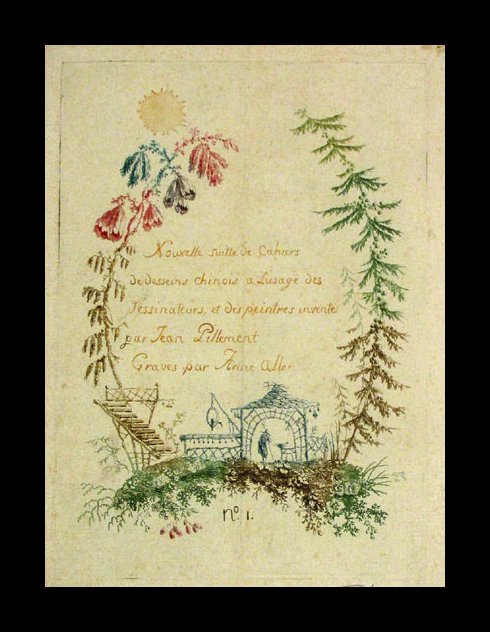 Nouvelle suitte de Cahiers
de desseins chinois a Lusage des
Dessinateurs, et des peintres inventes
par Jean Pillement
Graves par Anne Allen
nº 1.